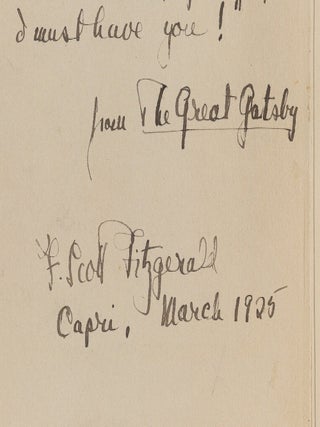 I must have you!"
from The Great Gatsby
F. Scott Fitzgerald
Capri, March 1925